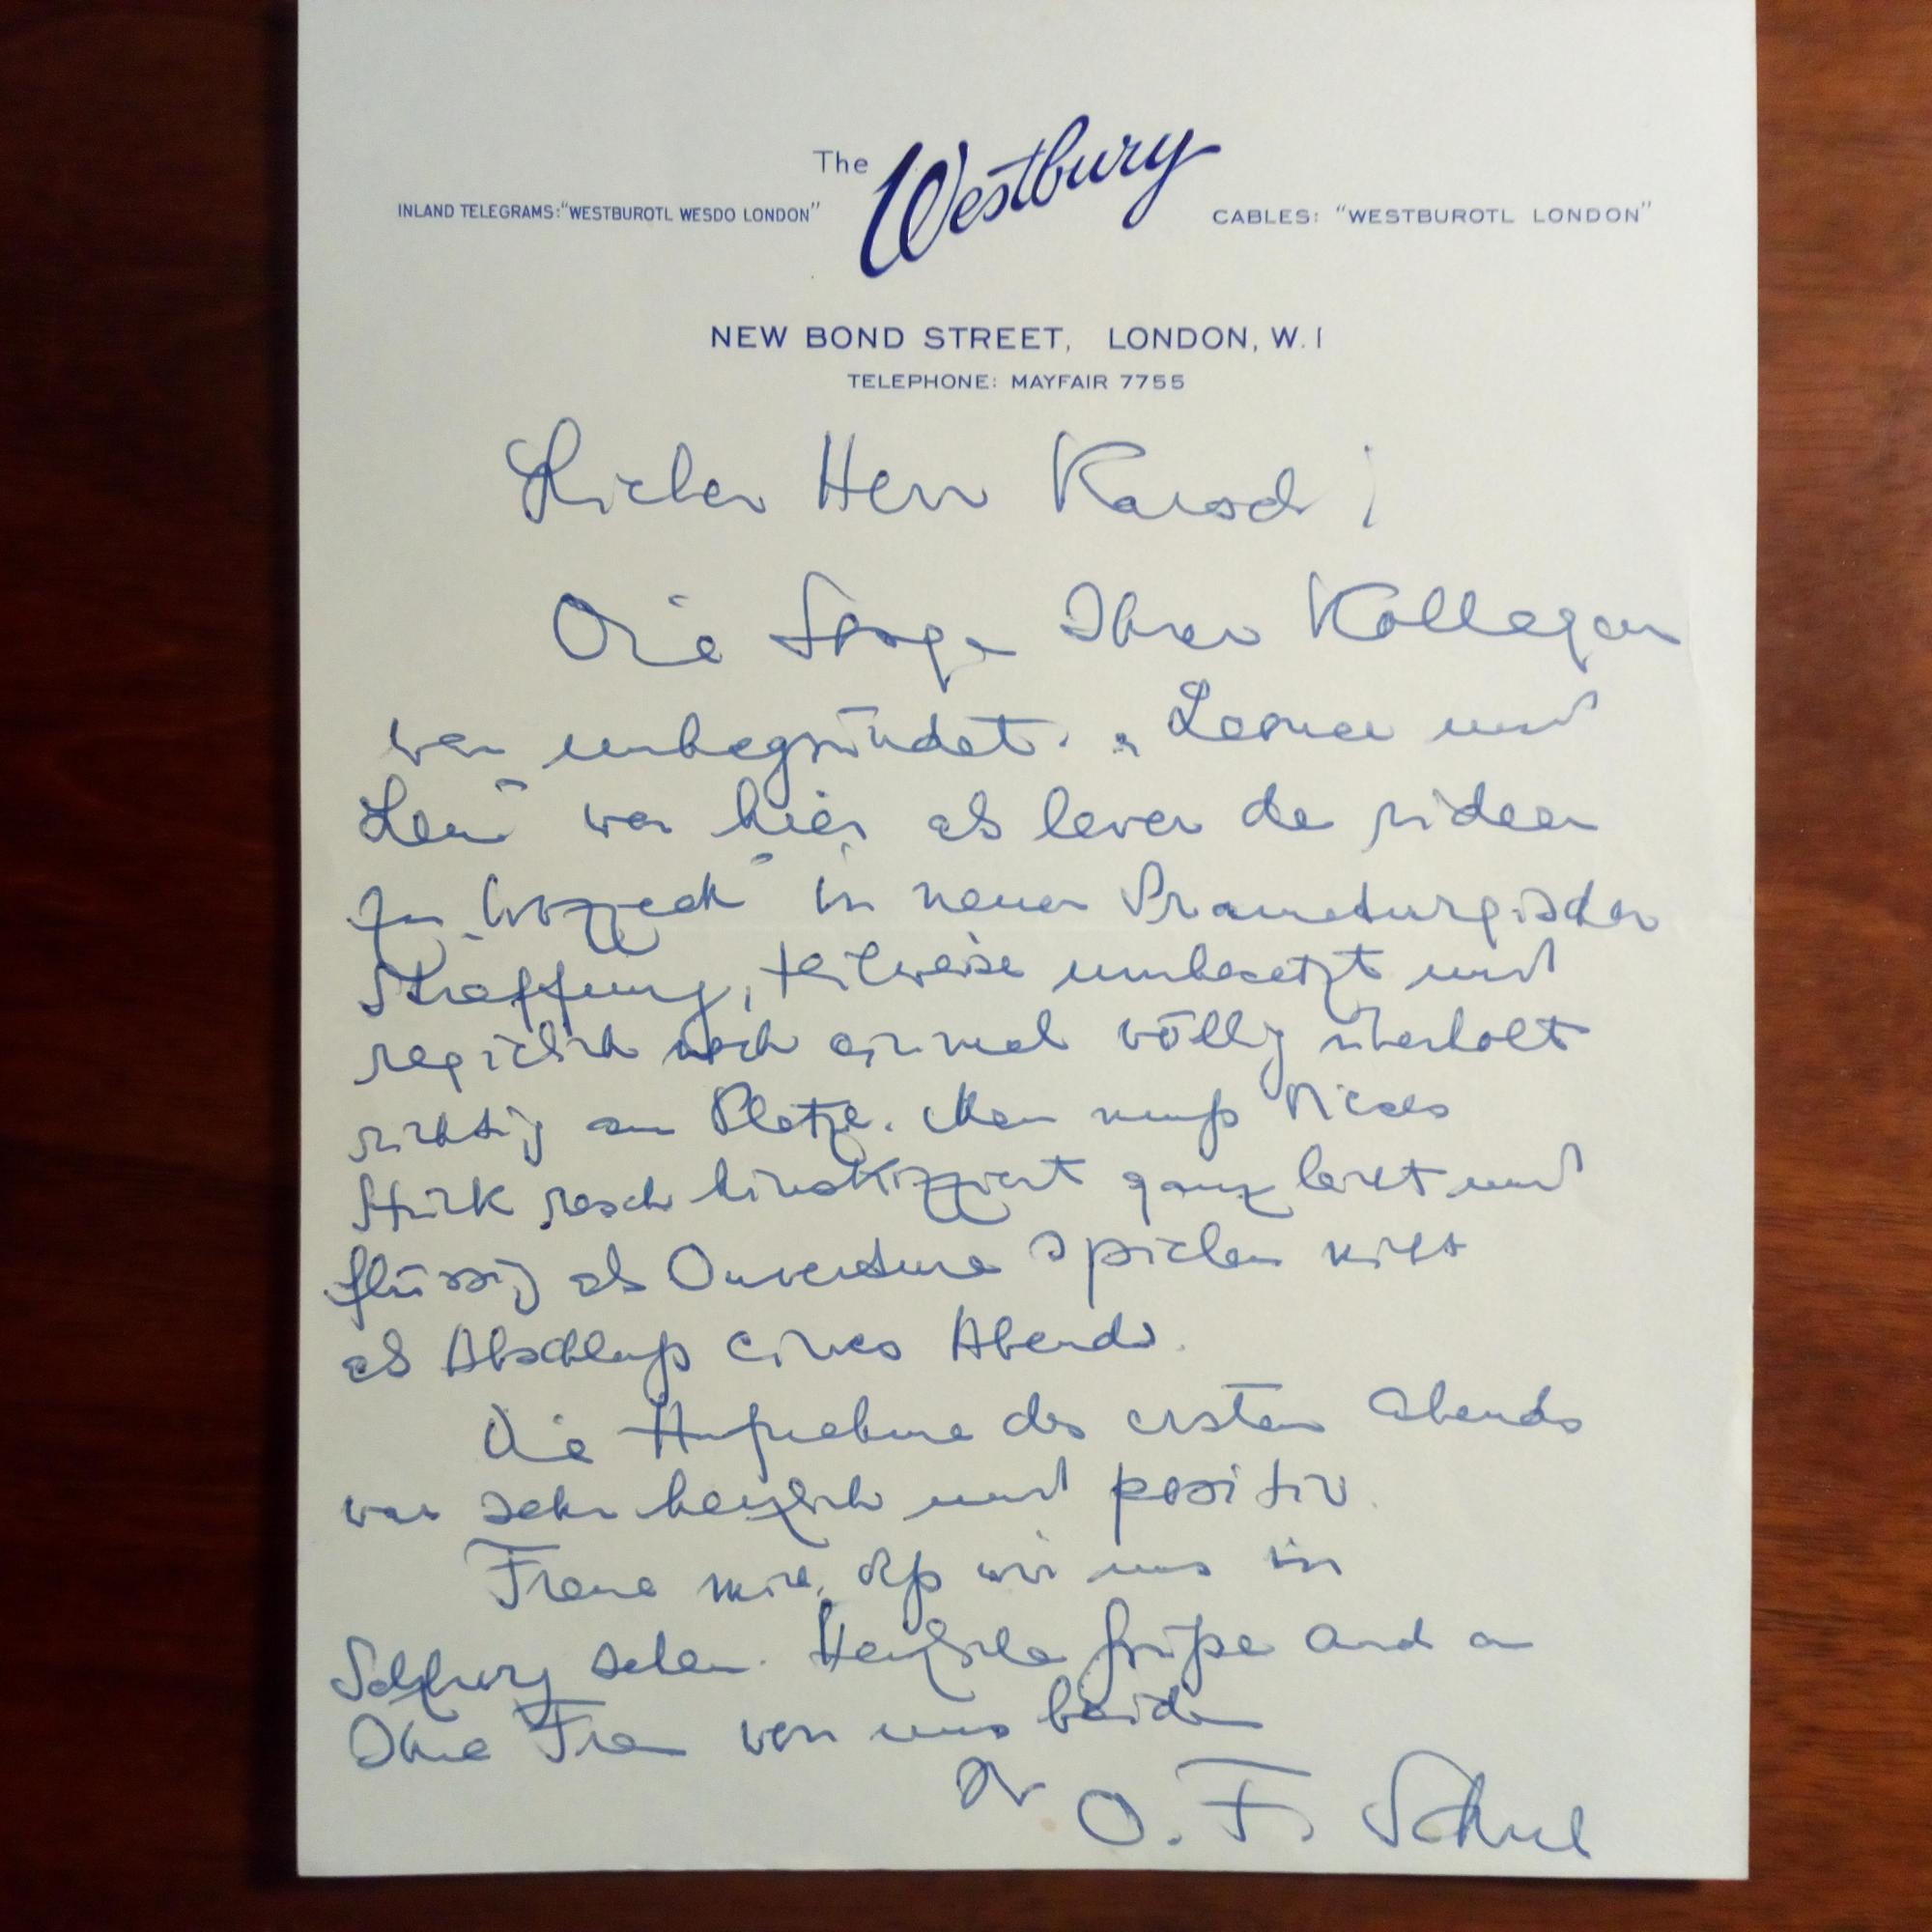 The Westbury
INLAND TELEGRAMS: "WESTBUROTL WESDO LONDON"
CABLES: "WESTBUROTL LONDON"
NEW BOND STREET, LONDON, W. 1
TELEPHONE: MAYFAIR 7755
Lieber Herr !
Die Ihrer Kollegen
war unbegründet. „Leonce und
Lena" war hier als lever de rideau
zu „Wozzeck" in neuer Dramaturgischer
Straffung, teilweise umbesetzt und
regielich noch einmal völlig überholt
richtig am Platze. Man muß dieses
Stück rasch hinskizziert ganz leicht und
flüssig als Ouverture spielen nicht
als Abschluß eines Abends.
Die Aufnahme des ersten Abends
war sehr herzlich und positiv.
Freue mich, daß wir uns in
Salzburg sehen. Herzliche Grüße auch an
Ihre Frau von uns beiden
Ihr O. F. Schuh